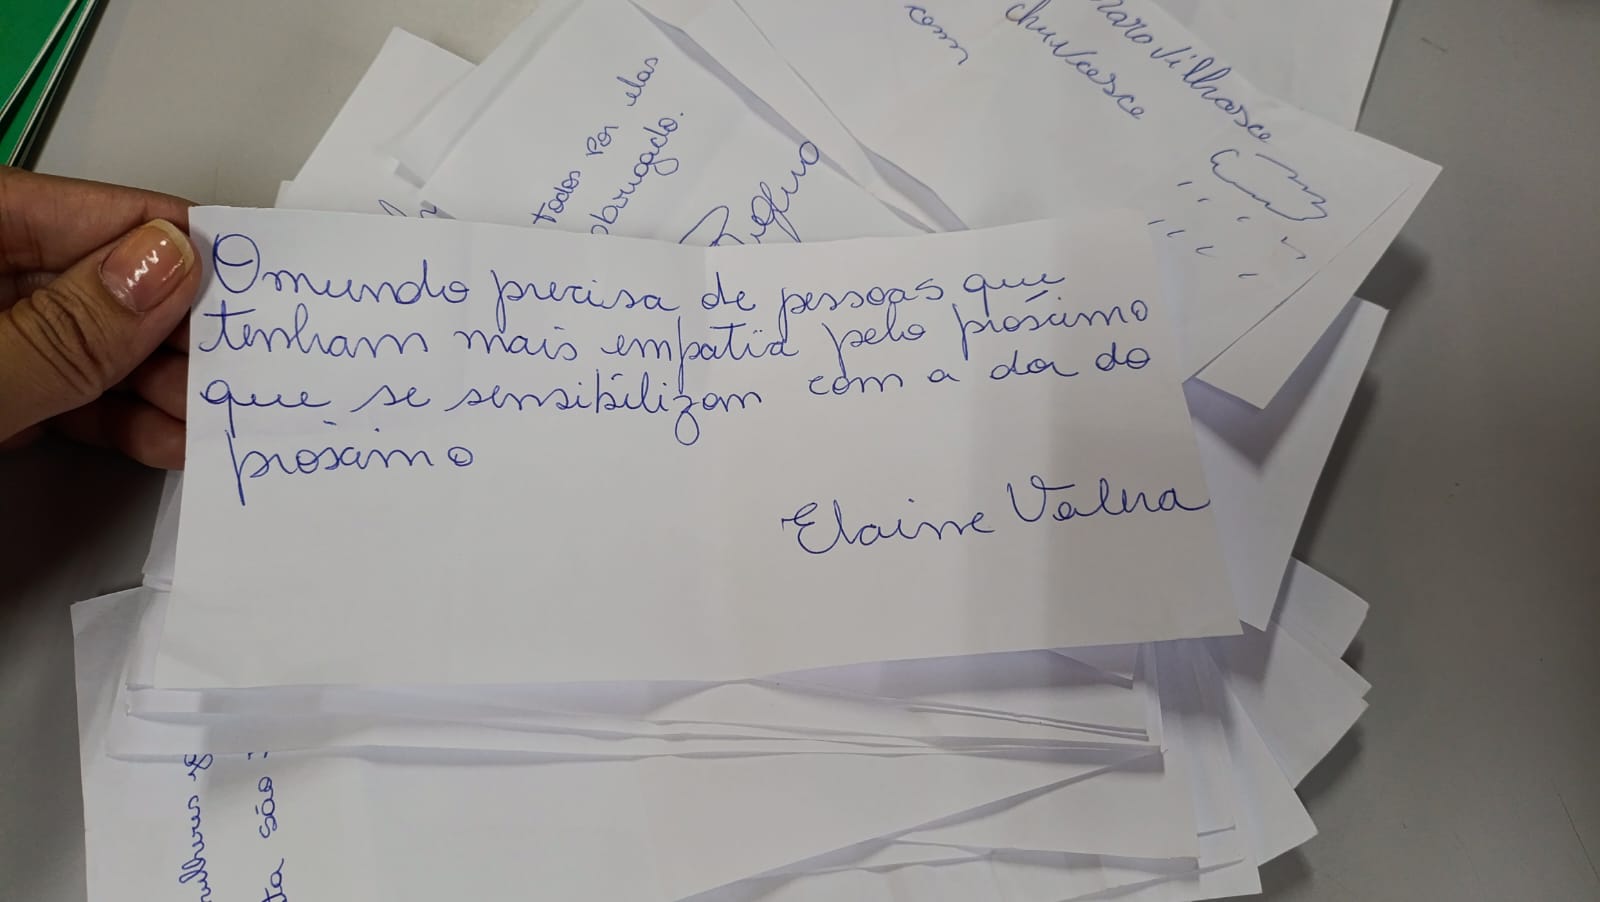 O mundo precisa de pessoas que
tenham mais empatia pelo próximo
que se sensibilizam com a dor do
próximo
Elaine Valera
Todos por elas
obrigado.
com
maravilhosa
chuvosa
mulheres
são